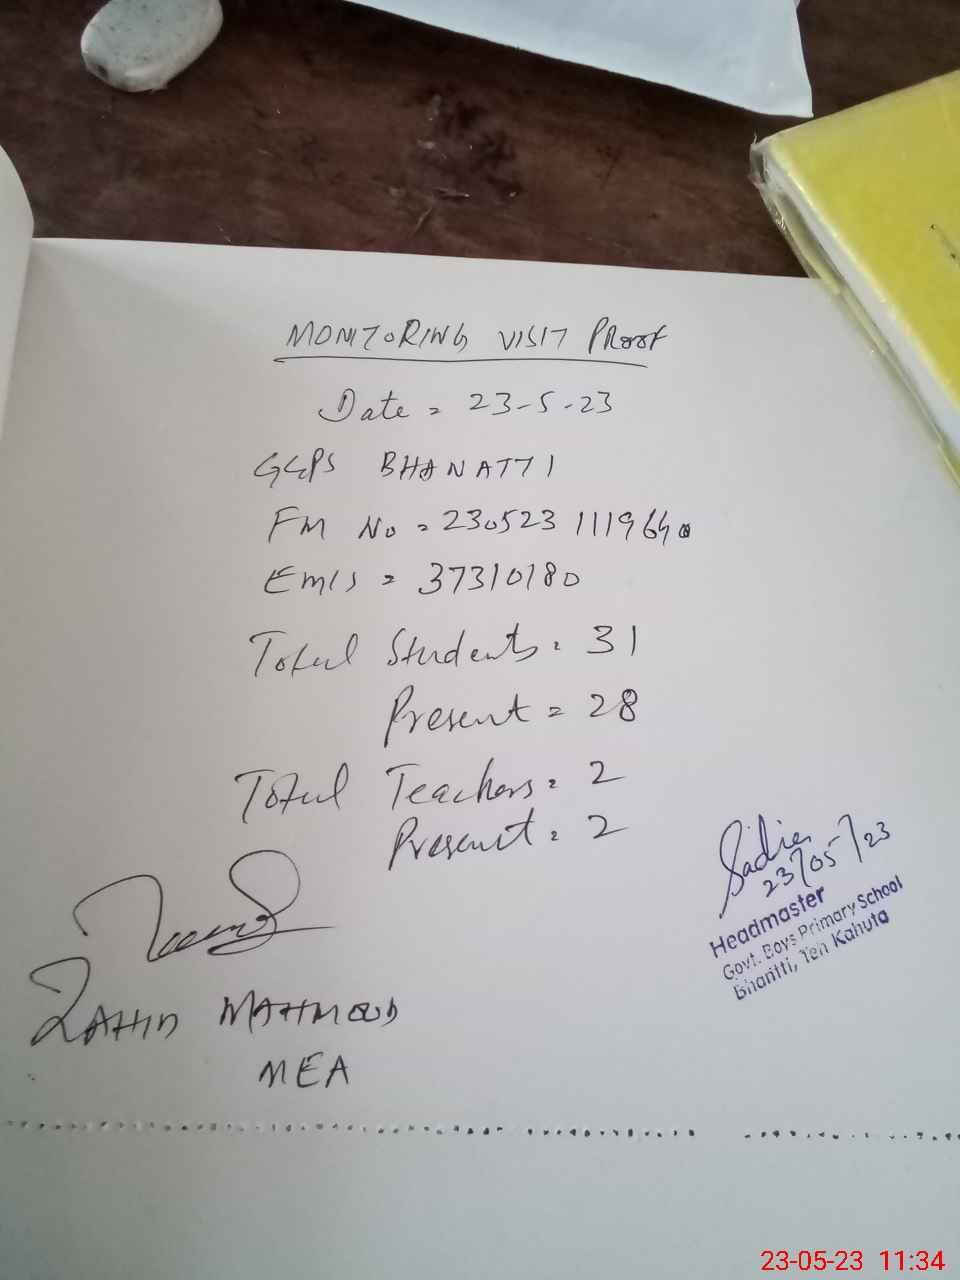 MONITORING VISIT PROOF
Date = 23-5-23
GGPS BHANATTI
FM No = 230523 1119640
EMIS = 37310180
Total Students = 31
Present = 28
Total Teachers = 2
Present = 2
Sadia
23/05/23
Headmaster
Govt. Boys Primary School
Bhantti, Teh Kahuta
ZAHID MAHMOOD
MEA
23-05-23 11:34